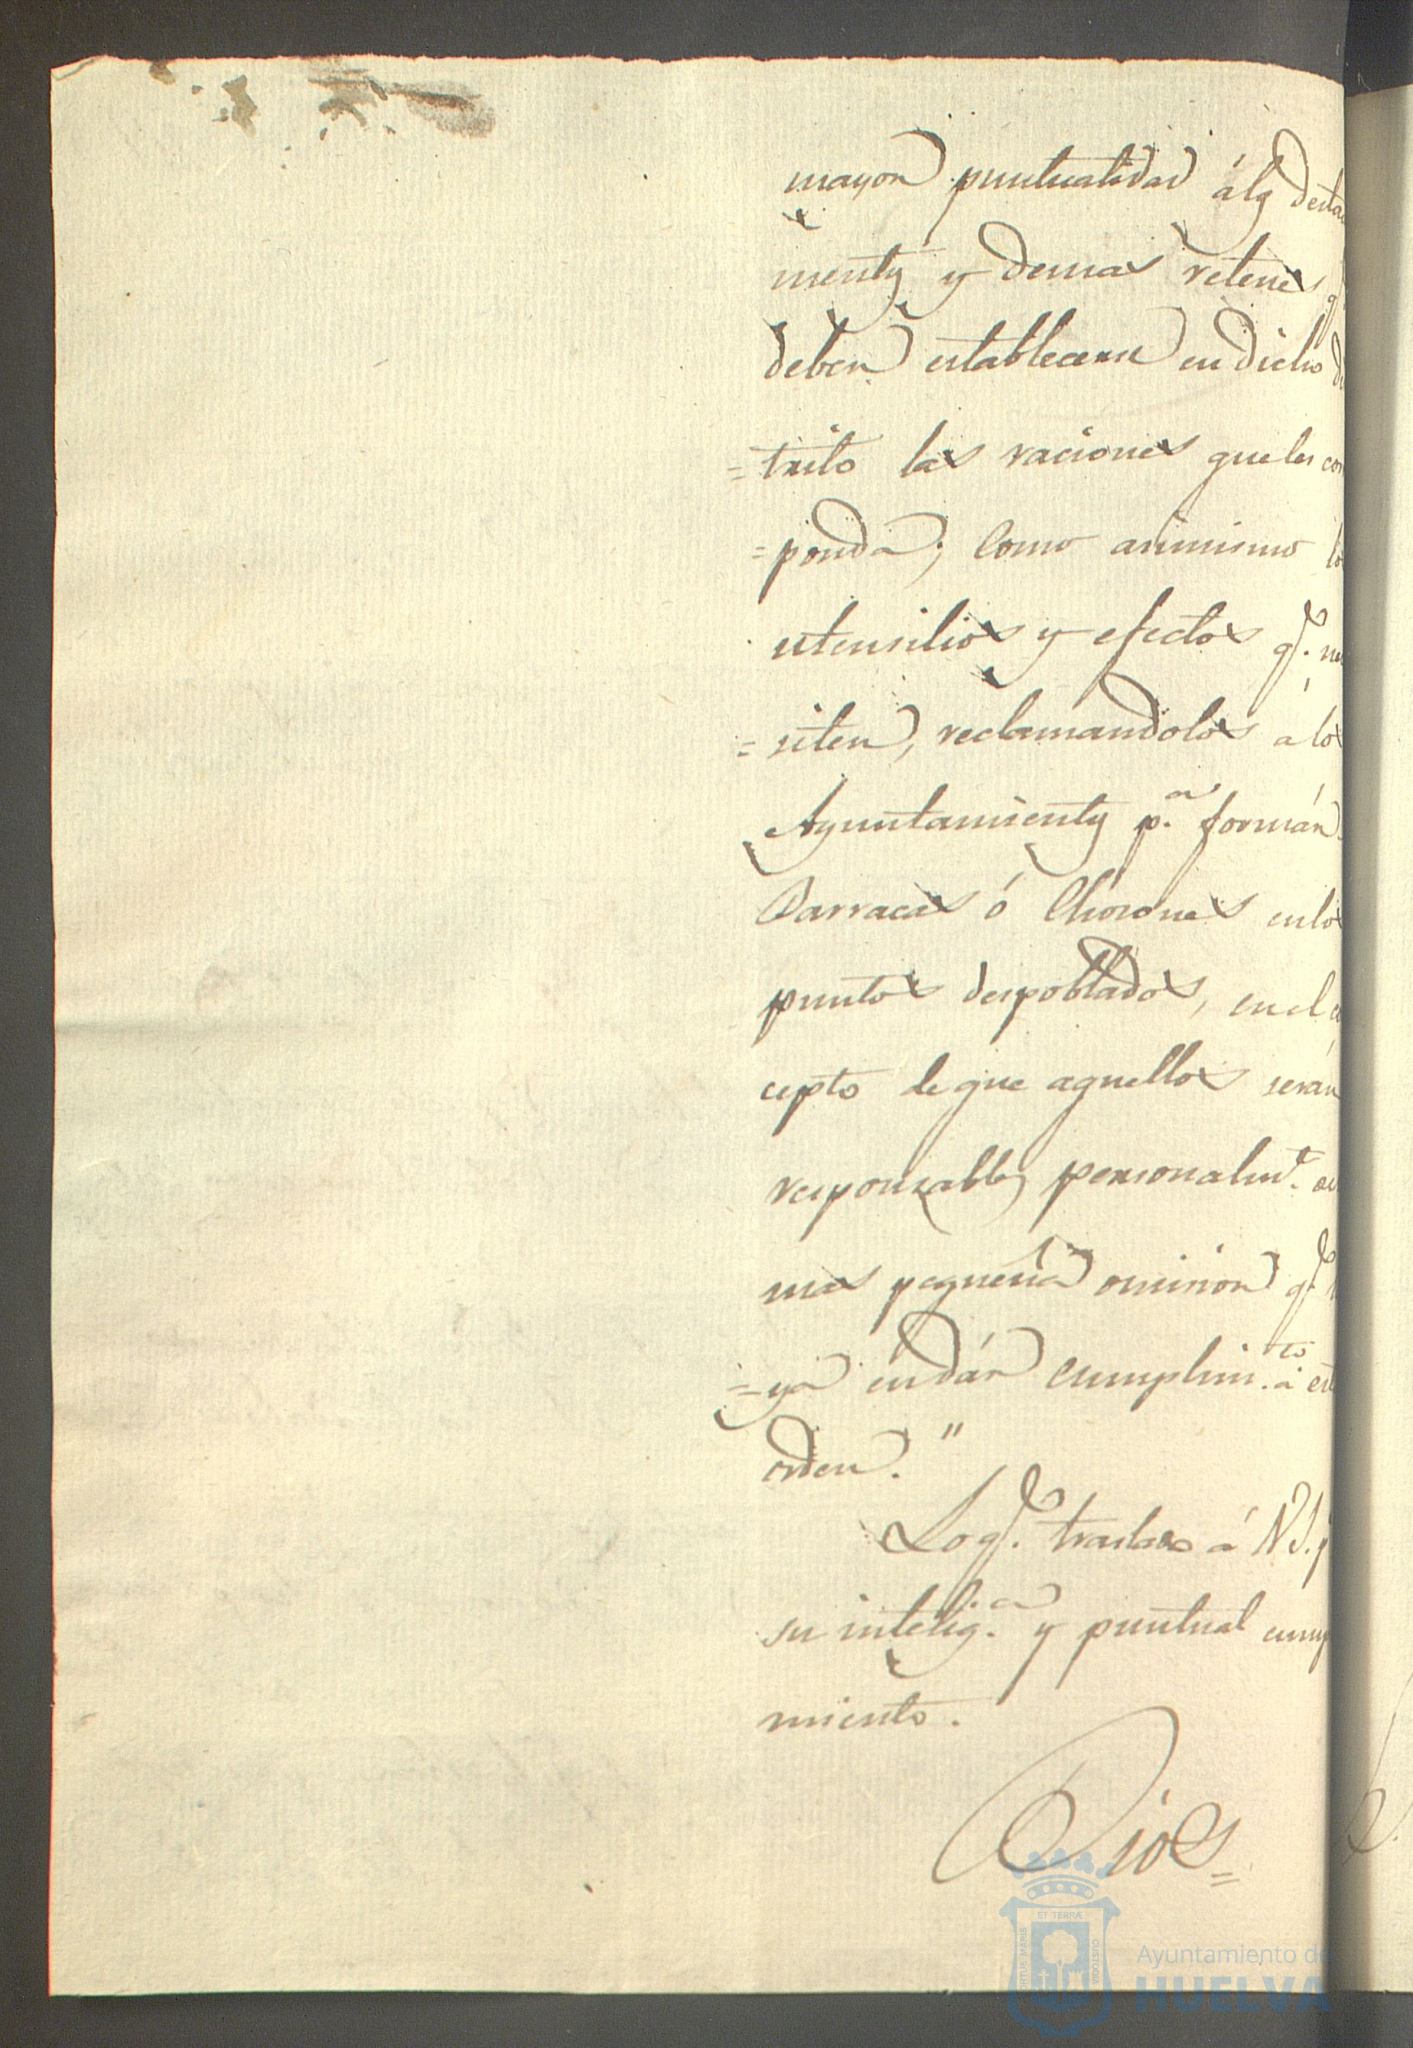 mayor puntualidad á los desta
mentos y demas retenes q
deben establecerse en dicho di
=trito las raciones que les cor
=ponda; como asimismo lo
utensilios y efectos q.e ne
=siten, reclamandolos á los
Ayuntamientos p.a formar
Barracas ó Chozones en los
puntos despoblados, en el co
cepto de que aquellos serán
responsables personalm.te
mas pequeña omision q.e
=ya en dár cumplim.to á est
orden."
Lo q.e traslado á V.S. p
su intelig.a y puntual cump
miento.
Dios=
ET TERRÆ
PORTUS MARIS
CUSTODIA
Ayuntamiento de
HUELVA